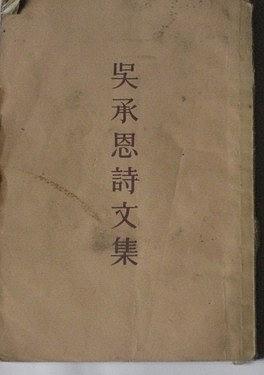 吳承恩詩文集